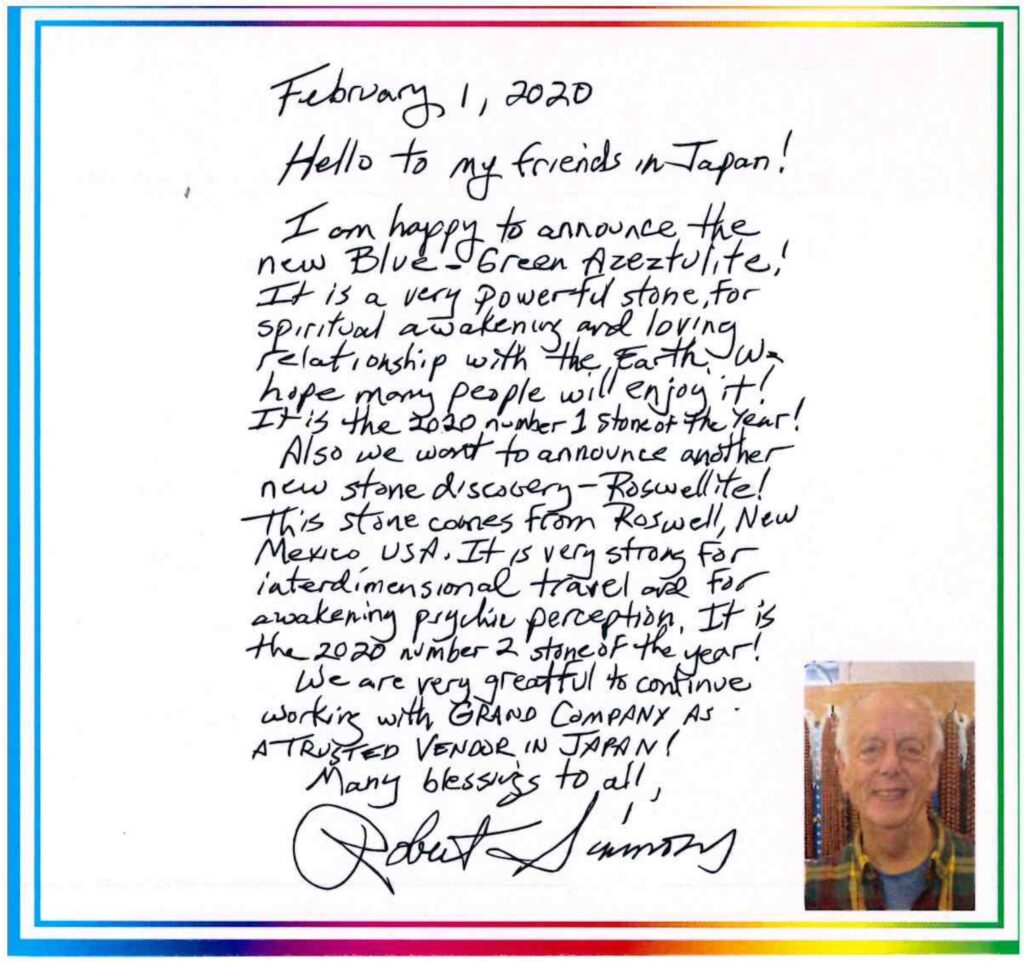 February 1, 2020
Hello to my friends in Japan!
I am happy to announce the
new Blue-Green Azeztulite!
It is a very powerful stone, for
spiritual awakening and loving
relationship with the Earth. We
hope many people will enjoy it!
It is the 2020 number 1 stone of the Year!
Also we want to announce another
new stone discovery - Roswellite!
This stone comes from Roswell, New
Mexico USA. It is very strong for
interdimensional travel and for
awakening psychic perception. It is
the 2020 number 2 stone of the year!
We are very greatful to continue
working with GRAND COMPANY AS
A TRUSTED VENDOR IN JAPAN!
Many blessings to all,
Robert Simmons